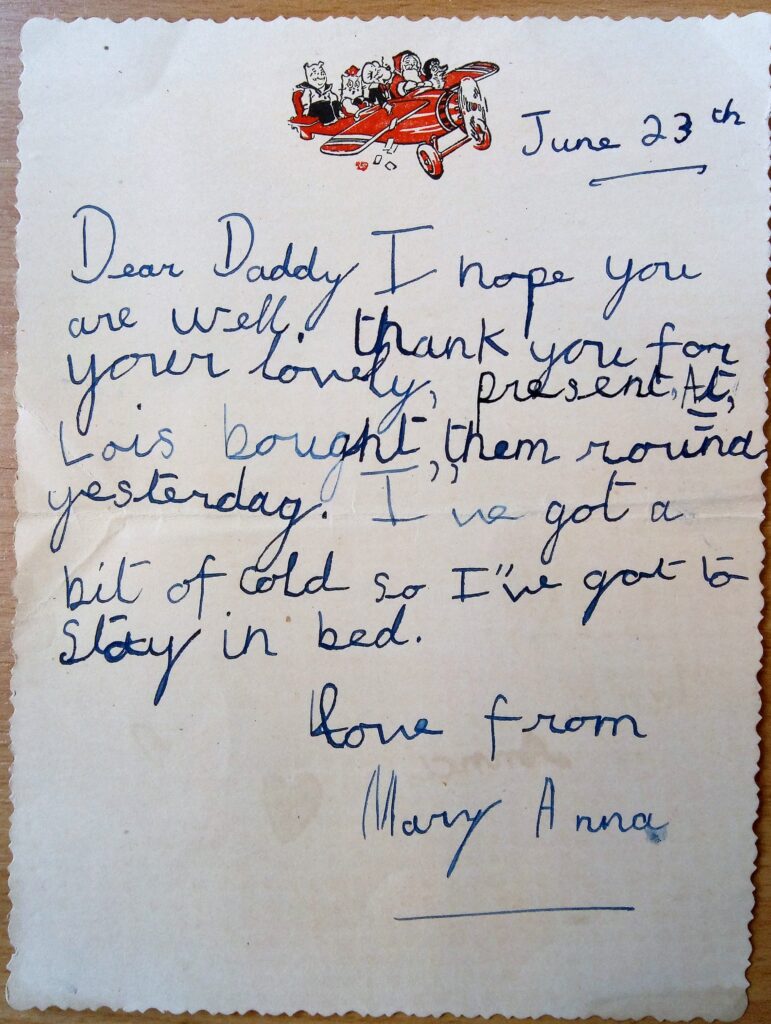 June 23th
Dear Daddy I hope you
are well. thank you for
your lovely, present, At,
Lois bought,, them round
yesterday. I've got a
bit of cold so I"ve got to
Stay in bed.
Love from
Mary Anna